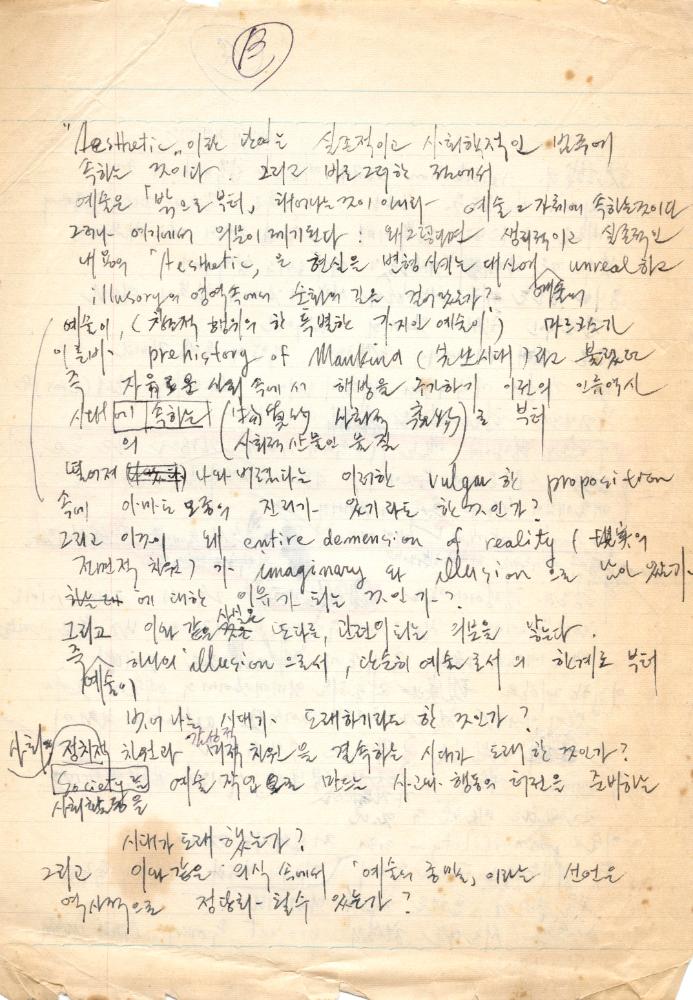 B
"Aesthetic„이란 관여는 실존적이고 사회학적인 범주에
속하는 것이다. 그리고 바로 그러한 점에서
예술은 「밖으로부터, 태어나는 것이 아니라 예술 그 자체에 속하는 것이다
그러나 여기에서 의문이 제기된다: 왜 그렇다면 생리적이고 실존적인
내용의 「Aesthetic, 은 현실을 변형시키는 대신에 unreal하고
illusory의 영역속에서 순화의 길을 걸어왔는가? 예술의
예술이, ( 창조적 행위의 한 특별한 가지인 예술이 ) 마르크스가
이른바 prehistory of Mankind ( 先史시대 ) 라고 불렀던
즉 자유로운 사회 속에서 해방을 추구하기 이전의 인류역사
시대에 속하는 ( 사회적 ) 로 부터
의 사회적 산물인 물질
떨어져 나와 버렸다는 이러한 vulgar 한 proposition
속에 아마도 모종의 진리가 있기라도 한 것인가?
그리고 이것이 왜 entire demension of reality ( 現実의
전면적 차원 ) 가 imaginary 와 illusion 으로 남아 있는가
하는데 에 대한 이유가 되는 것인가?
그리고 이와 같은 사실은 또 다른, 관련이 되는 의문을 낳는다.
즉 하나의 illusion 으로서, 단순히 예술로서의 한계로 부터
예술이
벗어 나는 시대가 도래하기라도 한 것인가?
사회의 정치적 차원과 감성적 미적 차원을 결속하는 시대가 도래한 것인가?
Society를 예술 작업으로 만드는 사고와 행동의 터전을 준비하는
시대가 도래 했는가?
그리고 이와 같은 의식 속에서 「예술의 종말, 이라는 선언은
역사적으로 정당화 될 수 있는가?